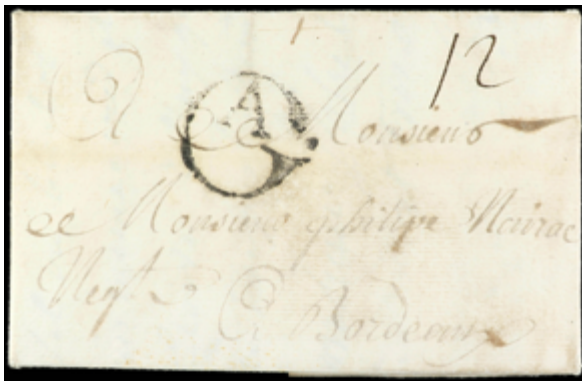 12
A
A Monsieur
Monsieur philipe Nairac
Negt
A Bordeaux